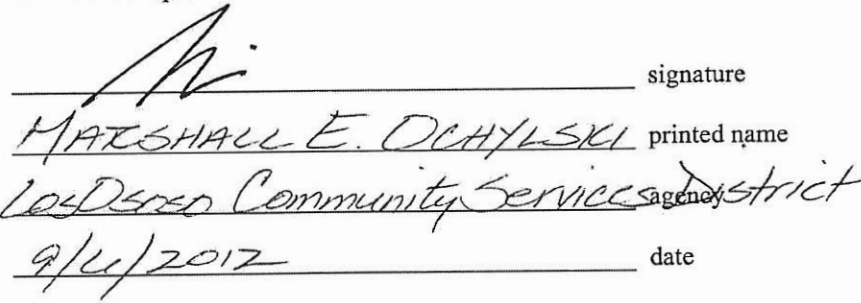 signature
MARSHALL E. OCHYLSKI printed name
Los Osos Community Services District agency
date